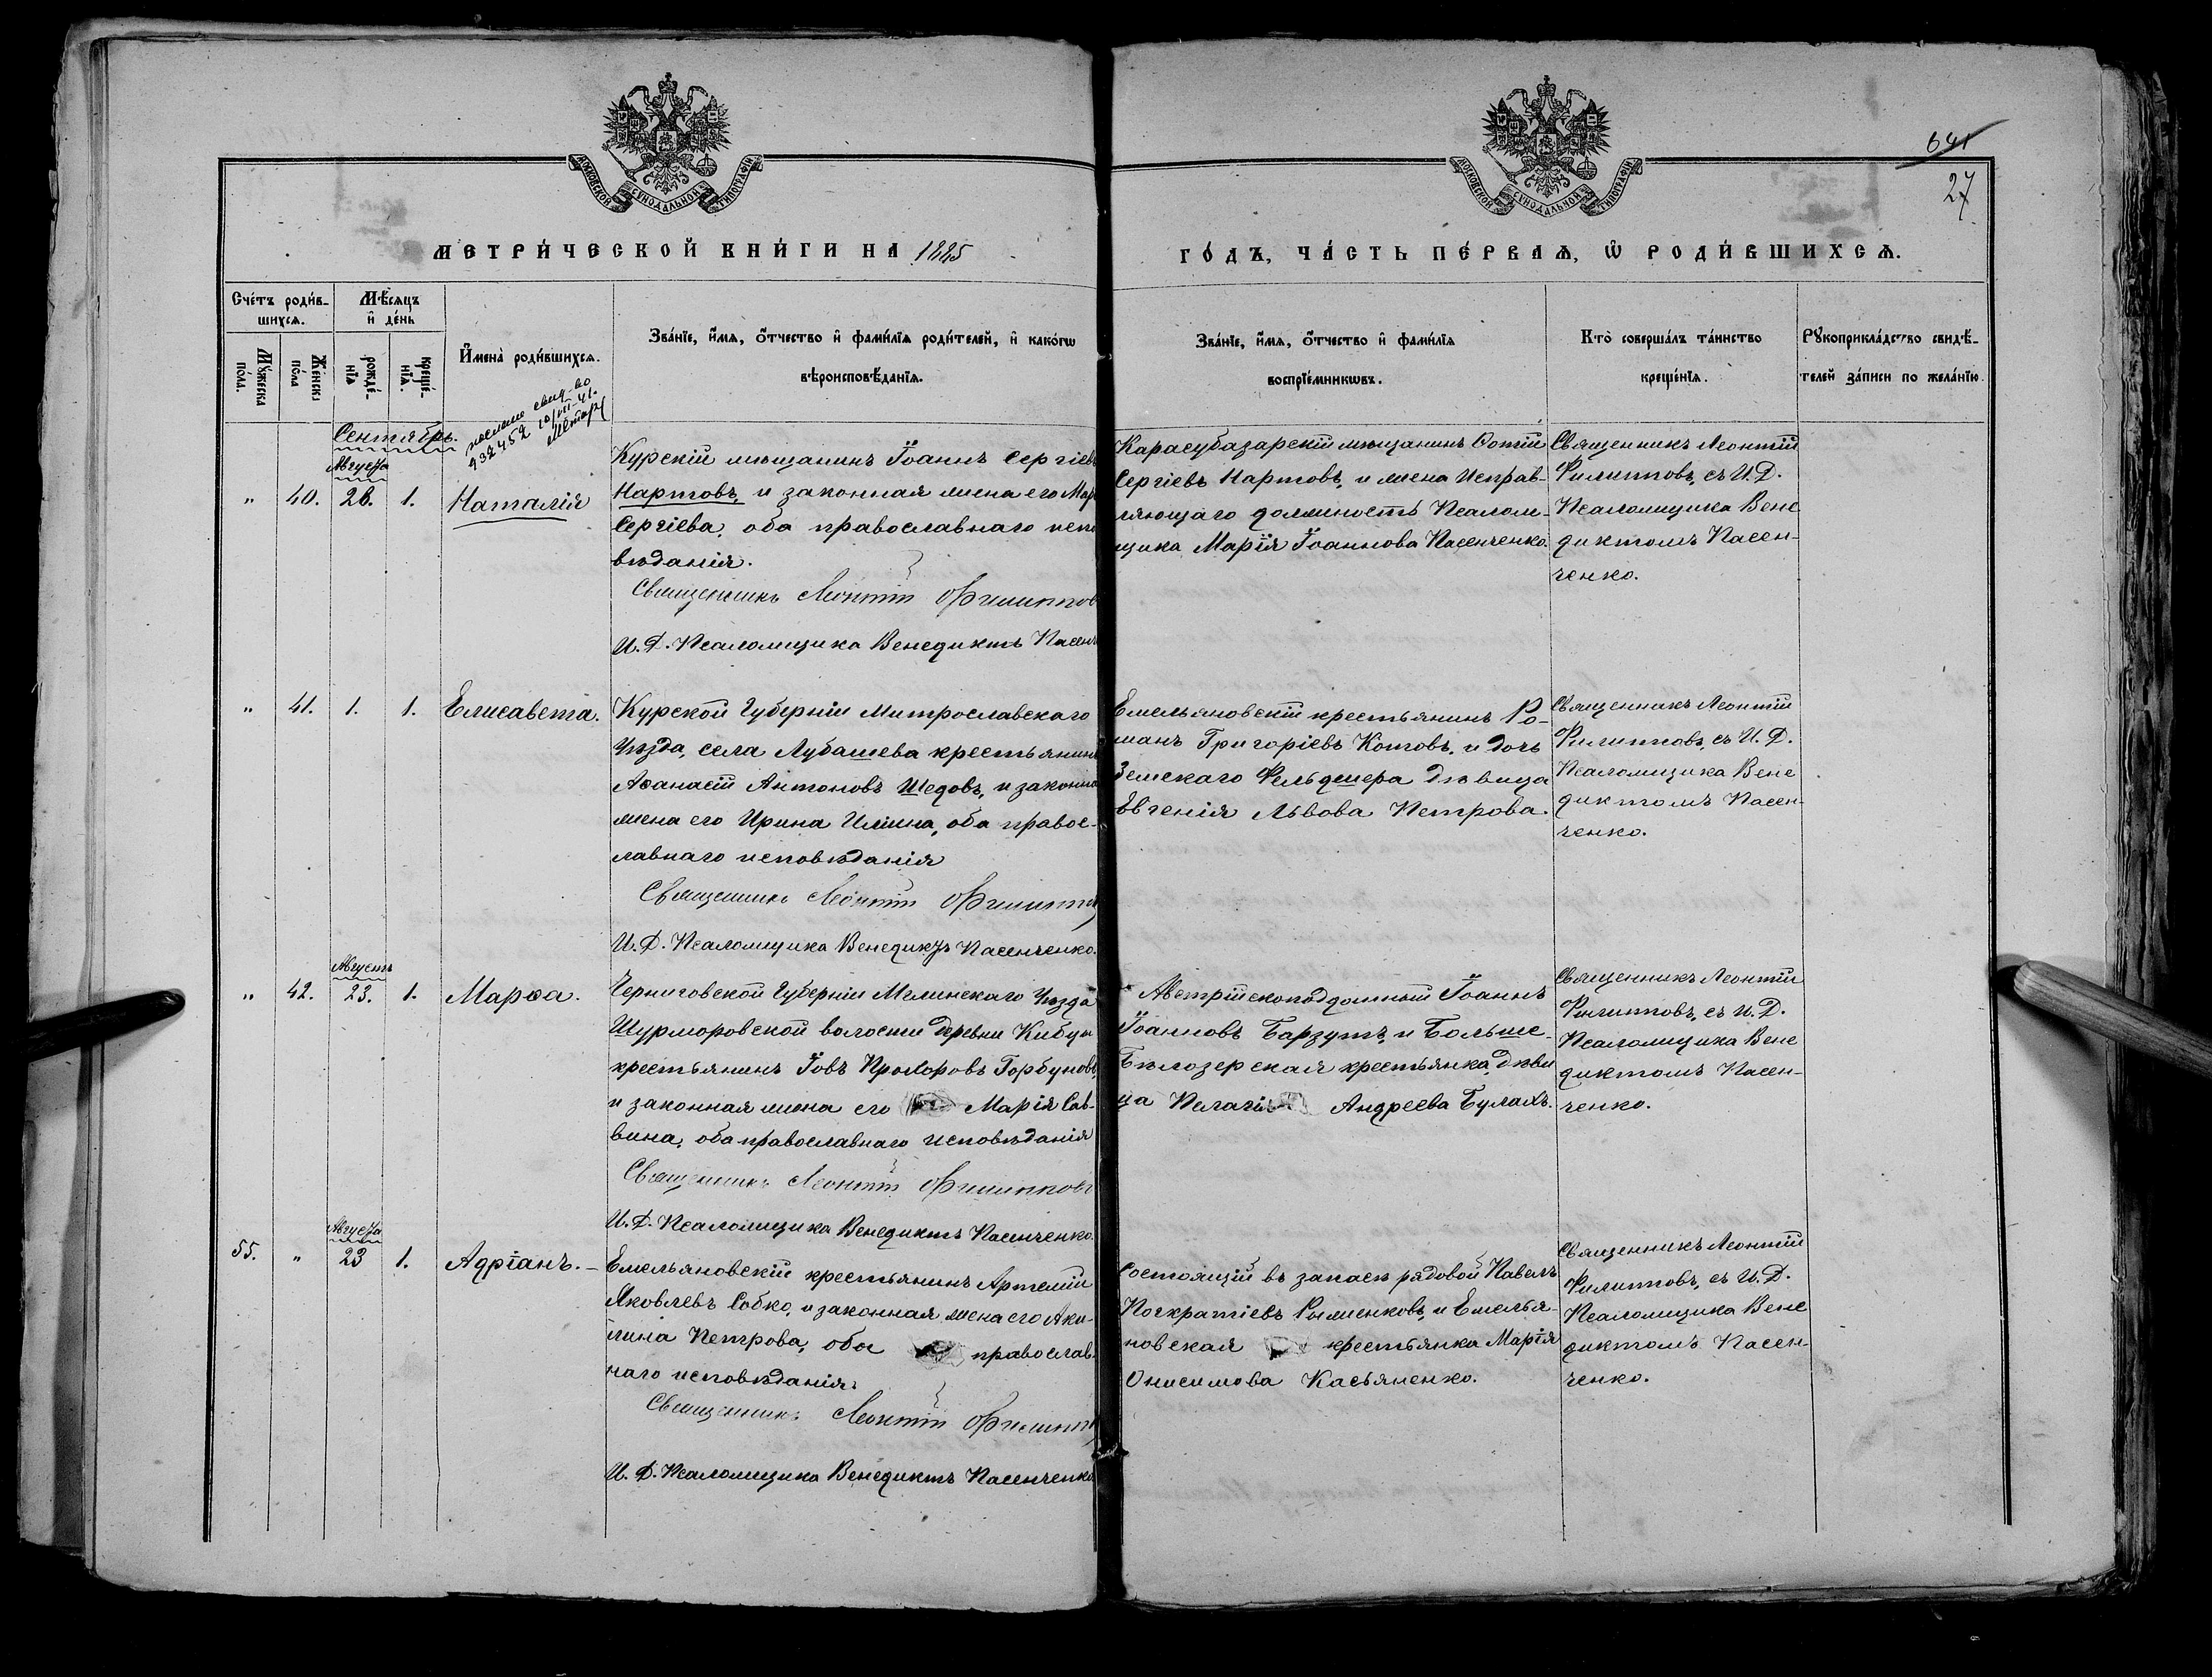 641
27
МОСКОВСКОЙ СѴНОДАЛЬНОЙ ТИПОГРАФІИ
МОСКОВСКОЙ СѴНОДАЛЬНОЙ ТИПОГРАФІИ
МЕТРИ́ЧЕСКОЙ КНИ́ГИ НА 1885
ГО́ДЪ, ЧА́СТЬ ПЕ́РВАѦ, Ѡ҆ РОДИ́ВШИХСѦ.
Сче́тъ роди́в-
шихсѧ.
Мꙋ́жеска
по́ла.
Же́нска
по́ла
Мѣ́сѧцъ
и҆ де́нь
рожде́-
нїѧ
креще́-
нїѧ.
И҆мена̀ роди́вшихсѧ.
Зва́нїе, и҆́мѧ, ѻ҆́тчество и҆ фами́лїѧ роди́телей, и҆ како́гѡ
вѣроисповѣ́данїѧ.
Зва́нїе, и҆́мѧ, ѻ҆́тчество и҆ фами́лїѧ
воспрїе́мникѡвъ.
Кто̀ соверша́лъ та́инство
креще́нїѧ.
Рꙋкоприкла́дство свидѣ́-
телей за́писи по жела́нїю.
свид-во
10/VII-41.
Сентябрь.
Августа
" 40. 28. 1. Наталія
Курскій мѣщанинъ Іоаннъ Сергіевъ
Нартовъ, и законная жена его Мар
Сергіева, оба православнаго испо
вѣданія.
Священникъ Леонтій Филиппов
И. Д. Псаломщика Венедиктъ Пасен
Карасубазарскій мѣщанинъ Фотій
Сергіевъ Нартовъ, и жена Исправ-
ляющаго должность Псалом-
щика Марія Іоаннова Пасенченко.
Священникъ Леонтій
Филиповъ, съ И. Д.
Псаломщика Вене
диктомъ Пасен-
ченко.
" 41. 1. 1. Елисавета.
Курской Губерніи Митрославскаго
Уѣзда, села Лубашева крестьянинъ
Аѳанасій Антоновъ Шедовъ, и законна
жена его Ирина Иліина, оба правос-
лавнаго исповѣданія
Священникъ Леонтій Филиппов
И. Д. Псаломщика Венедиктъ Пасенченко.
Емельяновскій крестьянинъ Ро-
манъ Григоріевъ Котовъ, и дочь
Земскаго Фельдшера дѣвица
Евгенія Львова Петрова.
Священникъ Леонтій
Филиповъ, съ И. Д.
Псаломщика Вене
диктомъ Пасен-
ченко.
Августъ
" 42. 23. 1. Марѳа.
Черниговской Губерніи Мглинскаго Уѣзда
Шурморовской волости деревни
крестьянинъ Іовъ Прохоровъ Горбуновъ,
и законная жена его Марія Сав-
вина, оба православнаго исповѣданія
Священникъ Леонтій Филипповъ
И. Д. Псаломщика Венедиктъ Пасенченко.
Австрійскоподданный Іоаннъ
Іоанновъ Барзутъ, и Больше-
Бѣлозерская крестьянка, дѣви
ца Пелагія Андреева Булахъ.
Священникъ Леонтій
Филиповъ, съ И. Д.
Псаломщика Вене
диктомъ Пасен-
ченко.
Августа
55. " 23 1. Адріанъ. —
Емельяновскій крестьянинъ Артемій
Яковлевъ Собко, и законная жена его Аки-
лина Петрова, оба православ-
наго исповѣданія.
Священникъ Леонтій Филиппов
И. Д. Псаломщика Венедиктъ Пасенченко
Состоящій въ запасѣ рядовой Павелъ
Панкратіевъ и Емелья-
новская крестьянка Марія
Онисимова Касьяненко.
Священникъ Леонтій
Филиповъ, съ И. Д.
Псаломщика Вене
диктомъ Пасен-
ченко.